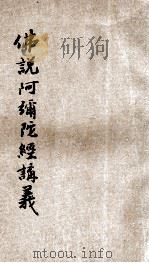 佛說阿彌陀經講義
mtoou.info